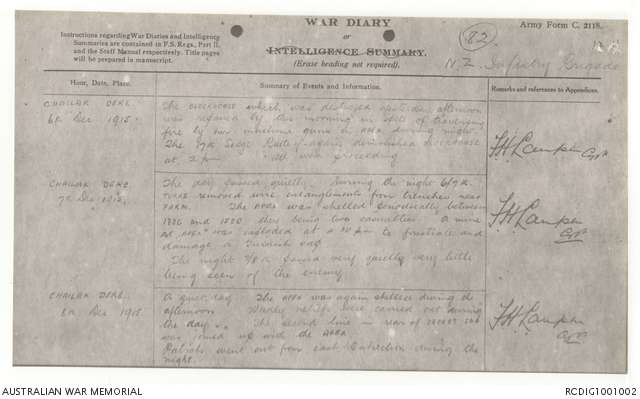 WAR DIARY
or
INTELLIGENCE SUMMARY.
(Erase heading not required).
Army Form C. 2118.
82
N.Z. Infantry Brigade
Instructions regarding War Diaries and Intelligence
Summaries are contained in F.S. Regs., Part II.
and the Staff Manual respectively. Title pages
will be prepared in manuscript.
Hour, Date, Place.
Summary of Events and Information.
Remarks and references to Appendices.
CHAILAK DERE
6th Dec 1915.
The blockhouse which was destroyed yesterday afternoon
was repaired by this morning in spite of traversing
fire by our machine guns & during night.
The again demolished blockhouse
at 2 pm
CHAILAK DERE
7th Dec 1915.
The day passed quietly. During the night 6/7th
removed wire entanglements from trenches near
FARM. The APEX was shelled sporadically between
and 1500, there being two casualties. A mine
at APEX was exploded at pm to frustrate and
damage a Turkish sap
The night 7/8th passed very quietly very little
being seen of the enemy
CHAILAK DERE.
8th Dec 1915
A quiet day. The APEX was again shelled during the
afternoon. Weekly reliefs were carried out during
the day. The second line in rear of
was joined up with the APEX
Patrols went out from each subsection during the
night.
AUSTRALIAN WAR MEMORIAL
RCDIG1001002